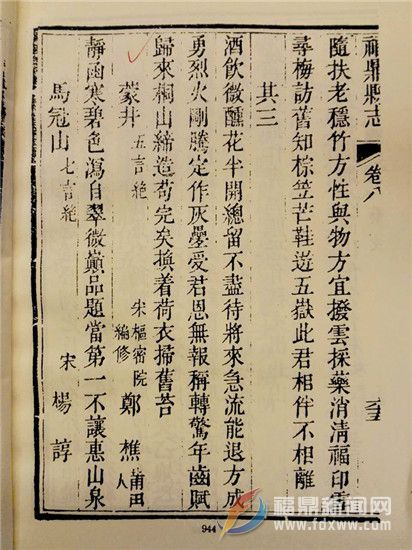 福鼎縣志 卷八
隨扶老穩竹方性與物方宜撥雲採藥消清福印雪
尋梅訪舊知棕笠芒鞋遊五嶽此君相伴不相離
其三
酒飲微醺花半開總留不盡待將來急流能退方成
勇烈火剛騰定作灰疊受君恩無報稱轉驚年齒賦
歸來桐山締造苟完矣換着荷衣掃舊苔
蒙井 五言絕 宋樞密院編修 鄭樵 莆田人
靜涵寒碧色瀉自翠微巔品題當第一不讓惠山泉
馬冠山 七言絕 宋 楊諄
944
福鼎新闻网
www.fdxww.com